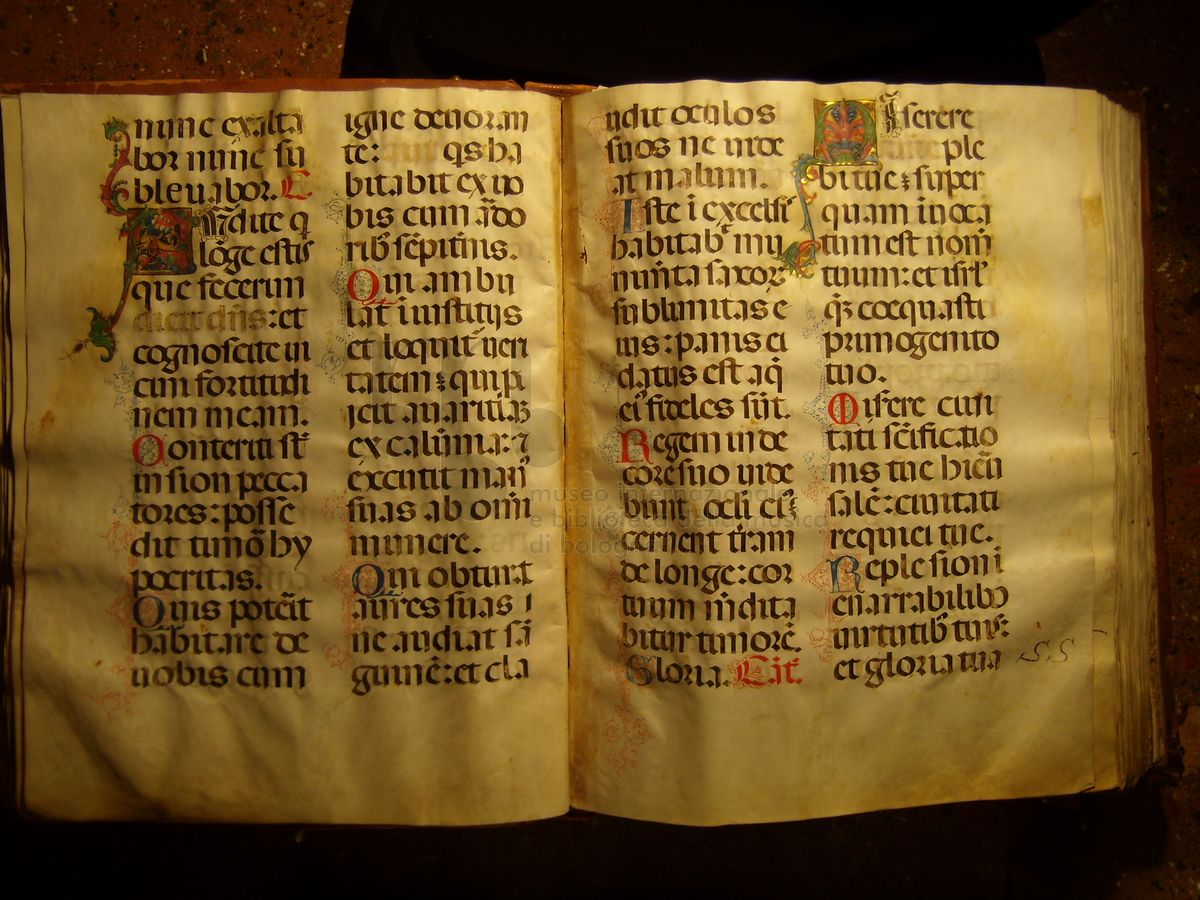 nunc exalta
bor nunc su
blevabor. C
Audite q
lōge estis
que fecerim
dicit dñs: et
cognoscite ui
cini fortitudi
nem meam.
Conterriti sūt
in sion pecca
tores: posse
dit timor̄ hy
pocritas.
Quis poterit
habitare de
vobis cum
igne devoran
te: qs ha
bitabit ex vo
bis cum ādo
ribꝰ sēpit̄nis.
Qui ambu
lat ī iustitijs
et loquit̄ veri
tatem: qui pi
icit avaritiā
ex calūmia: ⁊
excutit man̄
suas ab omī
munere.
Qui obturat
aures suas ı
ne audiat sā
guinē: et cla
udit oculos
suos ne vide
at malum.
Iste ī excelsis
habitabꝰ mu
nimīta saxor
sublimitas e
ius: panis ei
datus est aq̄
eiꝰ fideles sūt.
Regem in de
core suo vide
bunt ocli eiꝰ
cernent tr̄am
de longe: cor
tuum m̄dita
bitur timorē.
Gloria. Cāt.
Miserere
ple
bi tue: super
quam invoca
tum est nom̄
tuum: et isrl̄
qz̄ coequasti
primogenito
tuo.
Misere civi
tati scīficatio
nis tue hier̄u
salē: civitati
requiei tue.
Reple sion ī
enarrabilibꝰ
virtutibꝰ tuis:
et gloria tua
S.S
museo internazionale
e biblioteca della musica
di bologna